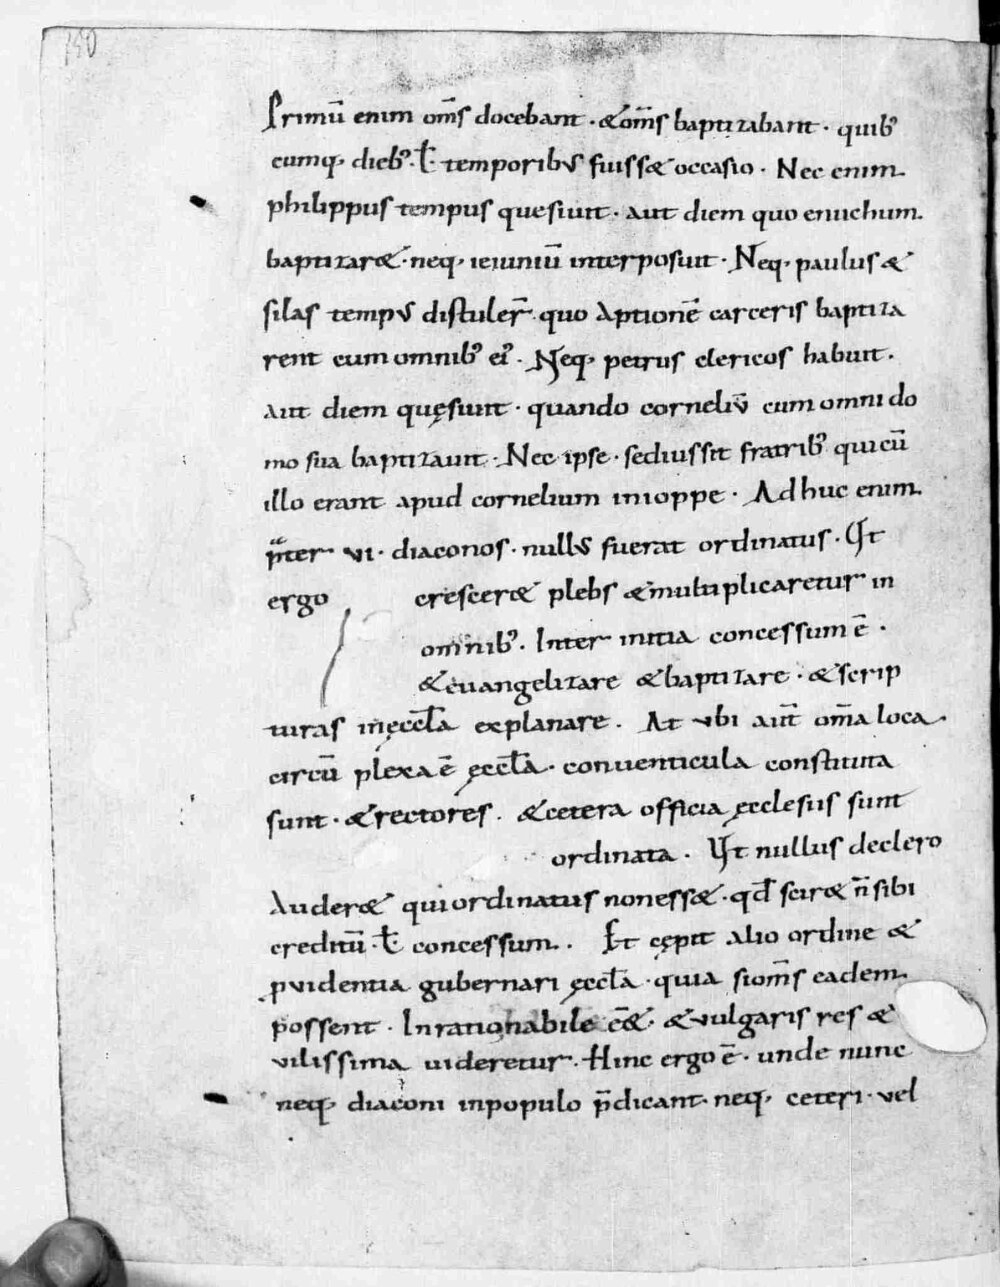 150
Primū enim om̄s docebant · &om̄s baptizabant · quib᾽
cumq· dieb᾽· ł temporibus fuiss& occasio · Nec enim
philippus tempus quesiuit · aut diem quo enuchum
baptizar& · neq· ieiuniū interposuit · Neq· paulus &
silas tempus distuler̄ quo Aptionē carceris baptiza
rent cum omnib᾽ ei᾽ · Neq· petrus clericos habuit ·
aut diem quęsiuit · quando corneliū cum omni do
mo sua baptizauit · Nec ipse · sediussit fratrib᾽ qui cū
illo erant apud cornelium inioppe · Ad huc enim
p̄ter vi · diaconos · nullus fuerat ordinatus · Ut
ergo crescer& plebs &multiplicaretur in
om̄nib᾽ · Inter initia concessum ē ·
&euangelizare &baptizare · &scrip
turas inęccl̄a explanare · At ubi aut̄ om̄a loca
circū plexa ē ęccl̄a · conuenticula constituta
sunt · &rectores · &cetera officia ęcclesiis sunt
ordinata · Ut nullus declero
Auder& qui ordinatus noness& · qd̄ scir& n̄ sibi
creditū · ł concessum · Et cępit alio ordine &
puidentia gubernari ęccl̄a · quia siom̄s eadem
possent · Inrationabile ē& · &uulgaris res &
vilissima uideretur · Hinc ergo ē · unde nunc
neq· diaconi inpopulo p̄dicant· neq· ceteri · vel